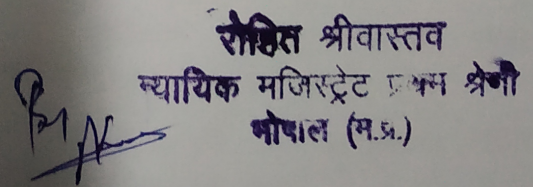 रोहित श्रीवास्तव
न्यायिक मजिस्ट्रेट प्रथम श्रेणी
भोपाल (म.प्र.)